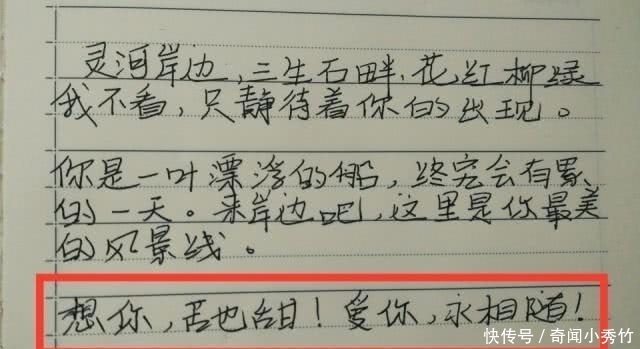 灵河岸边,三生石畔,花红柳绿
我不看,只静待着你的出现。
你是一叶漂浮的船,终究会有累
的一天。来岸边吧,这里是你最美
的风景线。
想你,苦也甜!爱你,永相随!
快传号/奇闻小秀竹